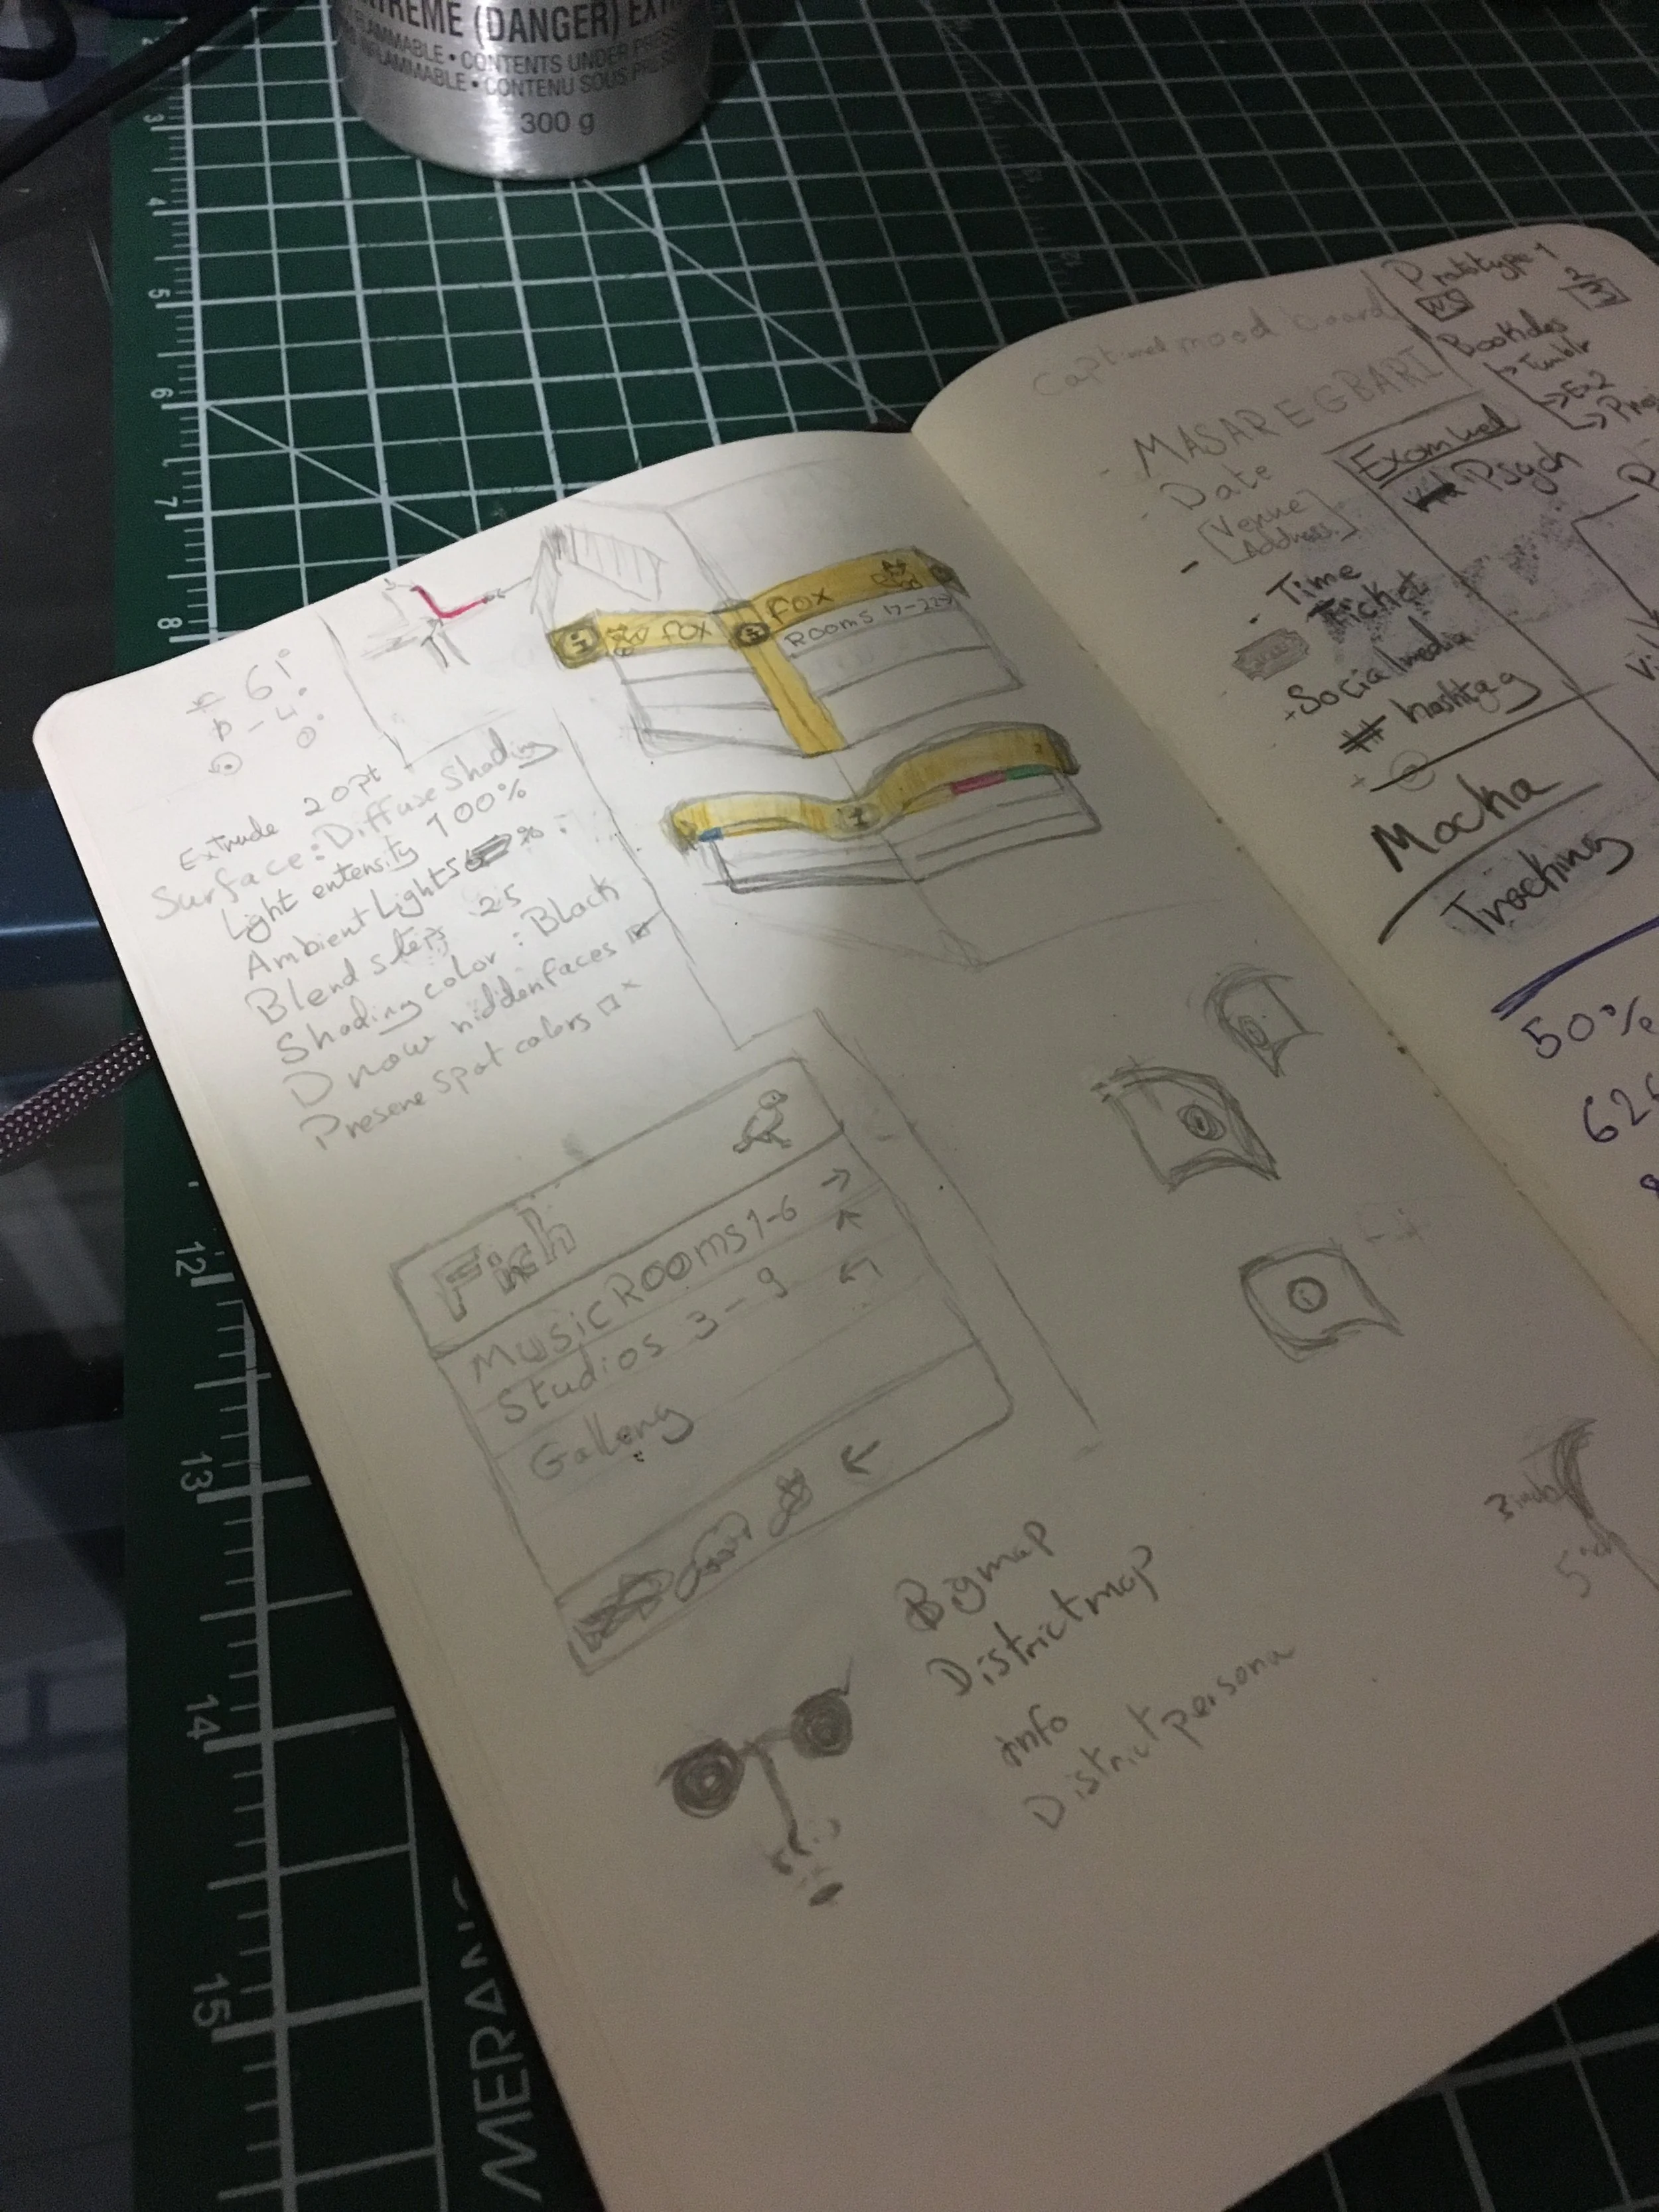 EXTREME (DANGER) EXT
FLAMMABLE • CONTENTS UNDER PRESS
INFLAMMABLE • CONTENU SOUS PRES
300 g
3
4
5
6
7
8
12
13
14
15
61°
-4°
0°
Extrude 20pt
Surface: Diffuse Shading
Light entensity 100%
Ambient Lights %
Blend steps 25
Shading color: Black
Draw hidden faces
Preserve Spot colors
i
FOX
i
FOX
Rooms 17-22
i
Finch
Music Rooms 1-6 →
Studios 3-9
Gallery
←
Big map
District map
info
District persona
i
mood board
MASAREGBARI
- Date
[Venue
Address]
- Time
Ticket
+ Social media
# hashtag
+
Mocha
Tracking
Prototype 1
Tumblr
→ Ex2
Psych
50%
626